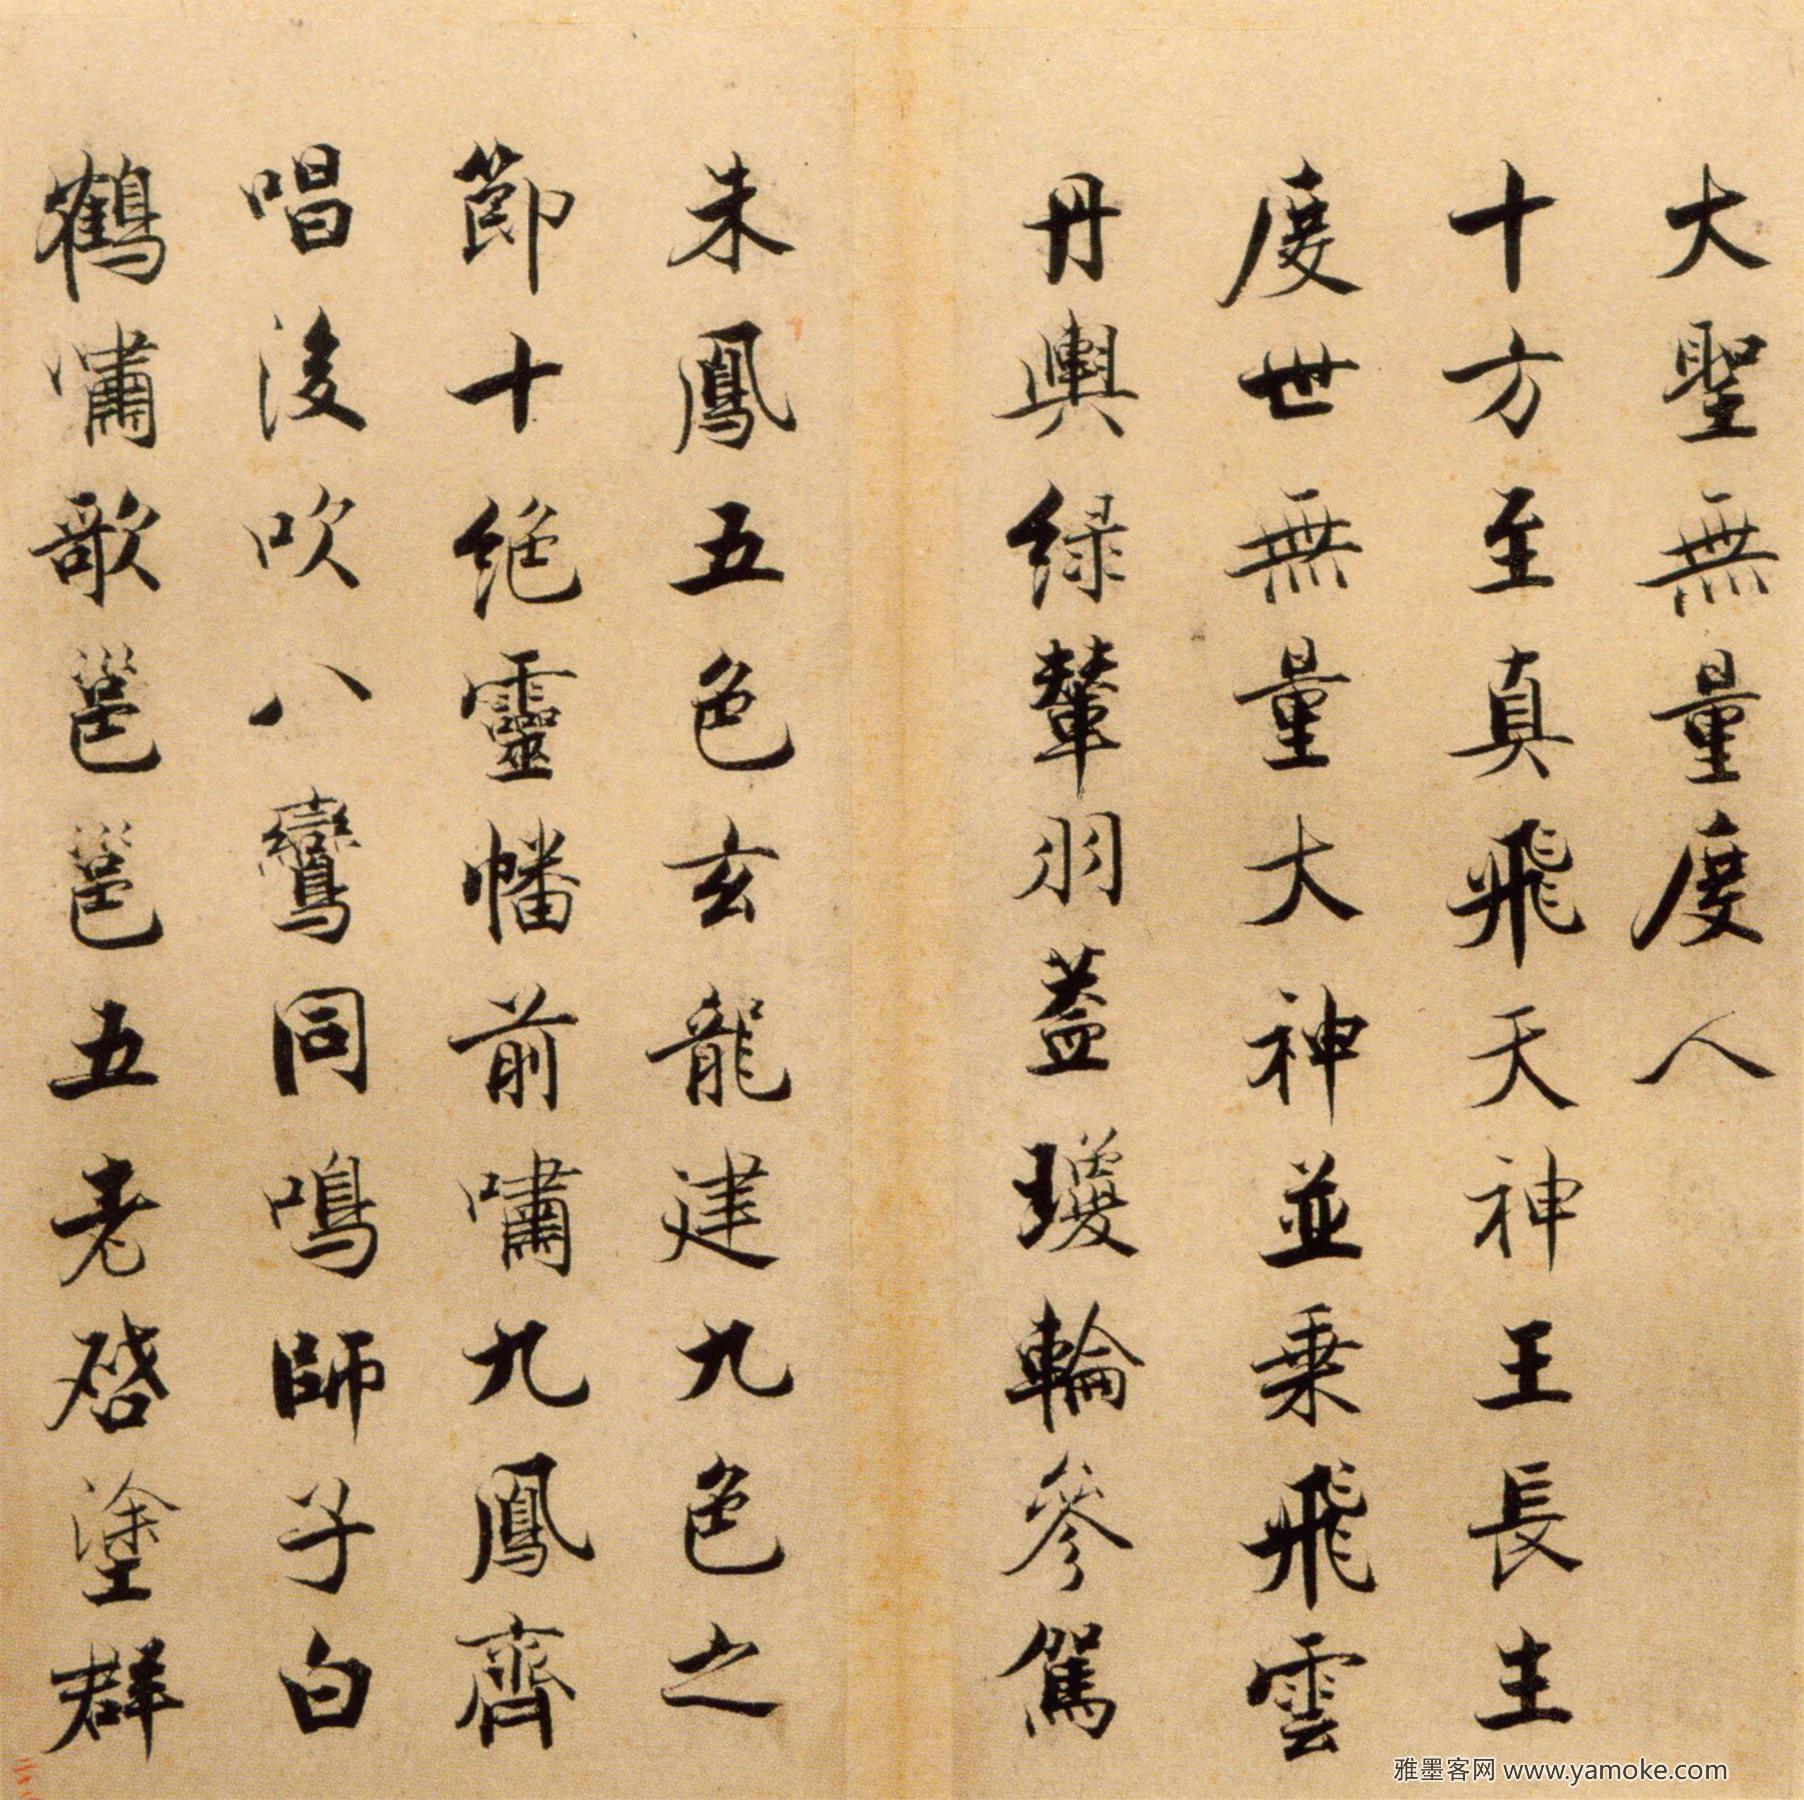 大聖無量度人
十方至真飛天神王長主
度世無量大神並乗飛雲
丹輿緑輦羽蓋瓊輪參駕
朱鳳五色玄龍建九色之
節十絶靈幡前嘯九鳳齊
唱後吹八鸞同鳴師子白
鶴嘯歌邕邕五老啓塗群
雅墨客网 www.yamoke.com